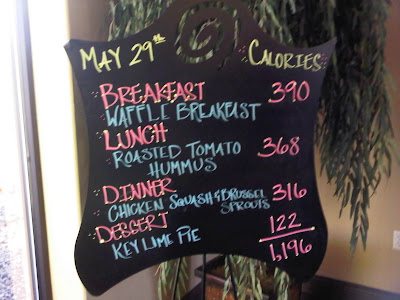 MAY 29th CALORIES
BREAKFAST 390
WAFFLE BREAKFAST
LUNCH
ROASTED TOMATO 368
HUMMUS
DINNER 316
CHICKEN SQUASH & BRUSSEL
SPROUTS
DESSERT 122
KEY LIME PIE
1,196